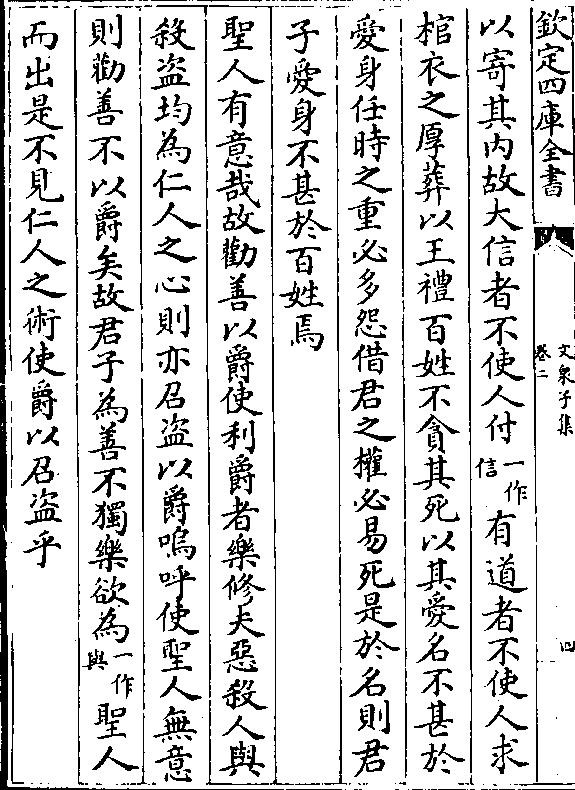 欽定四庫全書
文泉子集
卷二
四
以寄其内故大信者不使人付一作信有道者不使人求
棺衣之厚葬以王禮百姓不貪其死以其愛名不甚於
愛身任時之重必多怨借君之權必易死是於名則君
子愛身不甚於百姓焉
聖人有意哉故勸善以爵使利爵者樂修夫惡殺人與
殺盗均為仁人之心則亦召盗以爵嗚呼使聖人無意
則勸善不以爵矣故君子為善不獨樂欲為一作與聖人
而出是不見仁人之術使爵以召盗乎